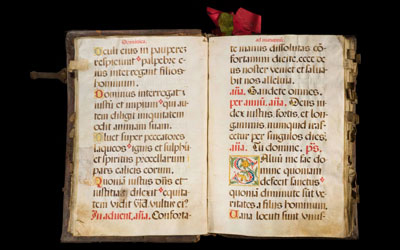 Oculi eius in pauperes
respiciunt palpebre e-
ius interrogant filios
hominum.
Dominus interrogat i-
ustū et impium qui au-
tem diligit iniquitatem
odit animam suam.
Pluet super peccatores
laqueos ignis et sulph
et spiritus procellarum
pars calicis eorum.
Quoniā iustus dñs et
iustitias dilexit equita-
tem vidit vultus
In aduent. aña. Conforta-
te manus dissolutas cō-
fortamini dicite, ecce de
us noster veniet et salua-
bit nos alleluia.
aña. Gaudete omnes.
per annū. aña. Deus iu-
dex iustus, fortis, et lon-
ganimis nunquid irasc-
cetur per singulos dies.
aña. Tu domine. ps.
Saluū me fac do
mine quoniam
defecit sanctus
quoniā diminute sūt ve-
ritates a filiis hominum.
Uana locuti sunt vnus-